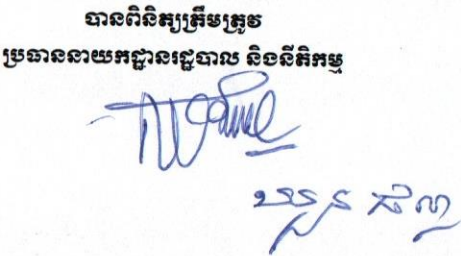 បានពិនិត្យត្រឹមត្រូវ
ប្រធាននាយកដ្ឋានរដ្ឋបាល និងនីតិកម្ម